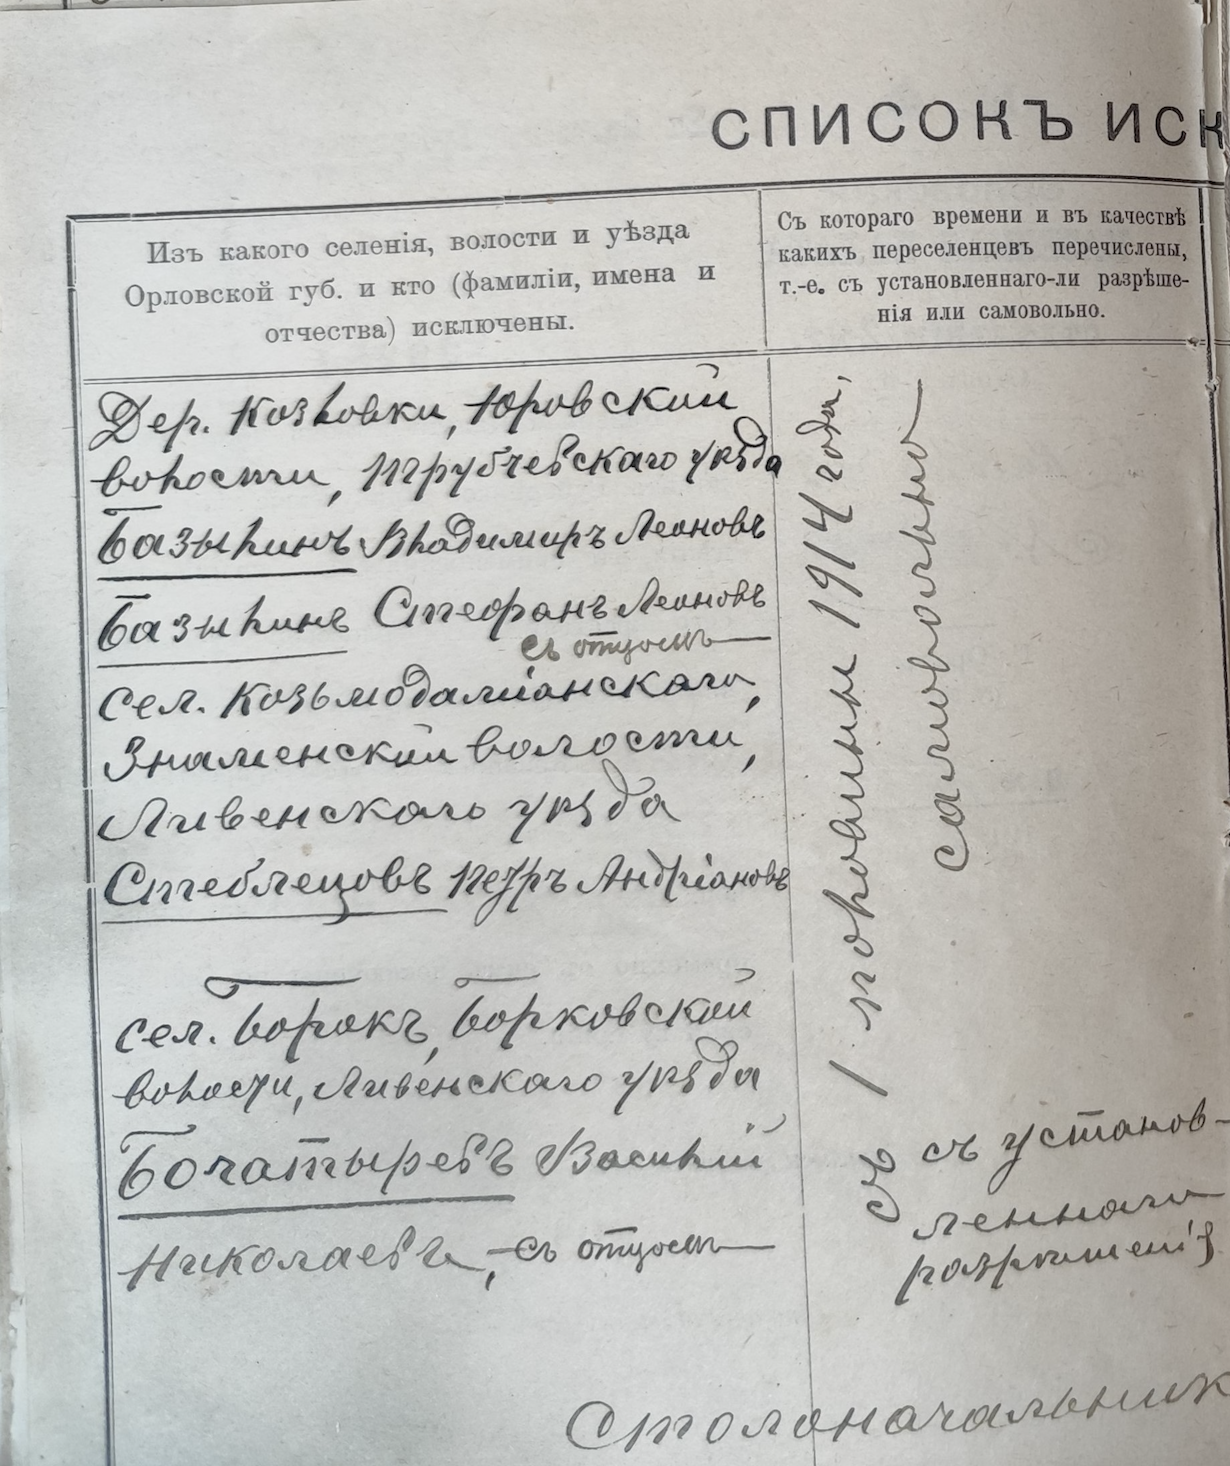 СПИСОКЪ ИСК
Изъ какого селенія, волости и уѣзда
Орловской губ. и кто (фамиліи, имена и
отчества) исключены.
Съ котораго времени и въ качествѣ
какихъ переселенцевъ перечислены,
т.-е. съ установленнаго-ли разрѣше-
нія или самовольно.
Дер. Козловки, Юровской
волости, Трубчевскаго уѣзда
Базылинъ Владимиръ Леоновъ
Базылинъ Стефанъ Леоновъ
съ отцомъ
сел. Козьмодаміанскаго,
Знаменской волости,
Ливенскаго уѣзда
Стеблецовъ Петръ Андріановъ
сел. Борокъ, Борковской
волости, Ливенскаго уѣзда
Богатыревъ Василій
Николаевъ, съ отцомъ
съ 1 половины 1914 года,
самовольно
съ установ-
леннаго
разрѣшенія
Столоначальник